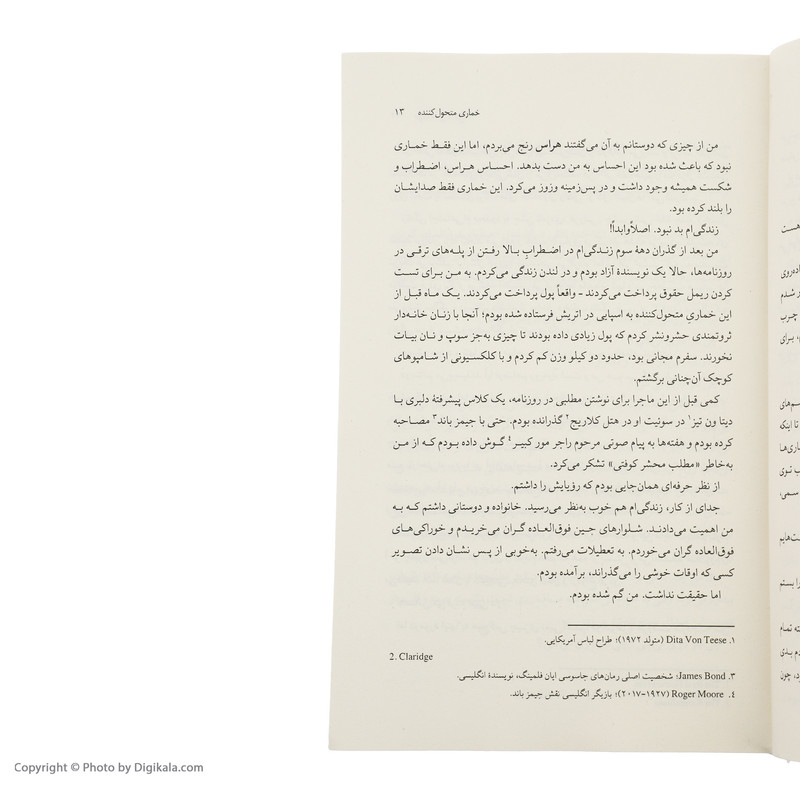 خماری متحول‌کننده ۱۳
من از چیزی که دوستانم به آن می‌گفتند هراس رنج می‌بردم، اما این فقط خماری
نبود که باعث شده بود این احساس به من دست بدهد. احساس هراس، اضطراب و
شکست همیشه وجود داشت و در پس‌زمینه وزوز می‌کرد. این خماری فقط صدایشان
را بلند کرده بود.
زندگی‌ام بد نبود. اصلاًوابداً!
من بعد از گذران دههٔ سوم زندگی‌ام در اضطرابِ بالا رفتن از پله‌های ترقی در
روزنامه‌ها، حالا یک نویسندهٔ آزاد بودم و در لندن زندگی می‌کردم. به من برای تست
کردن ریمل حقوق پرداخت می‌کردند - واقعاً پول پرداخت می‌کردند. یک ماه قبل از
این خماریِ متحول‌کننده به اسپایی در اتریش فرستاده شده بودم؛ آنجا با زنان خانه‌دار
ثروتمندی حشرونشر کردم که پول زیادی داده بودند تا چیزی به‌جز سوپ و نان بیات
نخورند. سفرم مجانی بود، حدود دو کیلو وزن کم کردم و با کلکسیونی از شامپوهای
کوچک آن‌چنانی برگشتم.
کمی قبل از این ماجرا برای نوشتن مطلبی در روزنامه، یک کلاس پیشرفتهٔ دلبری با
دیتا ون تیز۱ در سوئیت او در هتل کلاریج۲ گذرانده بودم. حتی با جیمز باند۳ مصاحبه
کرده بودم و هفته‌ها به پیام صوتی مرحوم راجر مور کبیر۴ گوش داده بودم که از من
به‌خاطر «مطلب محشر کوفتی» تشکر می‌کرد.
از نظر حرفه‌ای همان‌جایی بودم که رؤیایش را داشتم.
جدای از کار، زندگی‌ام هم خوب به‌نظر می‌رسید. خانواده و دوستانی داشتم که به
من اهمیت می‌دادند. شلوارهای جین فوق‌العاده گران می‌خریدم و خوراکی‌های
فوق‌العاده گران می‌خوردم. به تعطیلات می‌رفتم. به‌خوبی از پس نشان دادن تصویر
کسی که اوقات خوشی را می‌گذراند، برآمده بودم.
اما حقیقت نداشت. من گم شده بودم.
۱. Dita Von Teese (متولد ۱۹۷۲)؛ طراح لباس آمریکایی.
2. Claridge
۳. James Bond؛ شخصیت اصلی رمان‌های جاسوسی ایان فلمینگ، نویسندهٔ انگلیسی.
۴. Roger Moore (۱۹۲۷-۲۰۱۷)؛ بازیگر انگلیسی نقش جیمز باند.
هست
شدم
چرب
برای
تا اینکه
سمی،
را بستم
تمام
چون
Copyright © Photo by Digikala.com